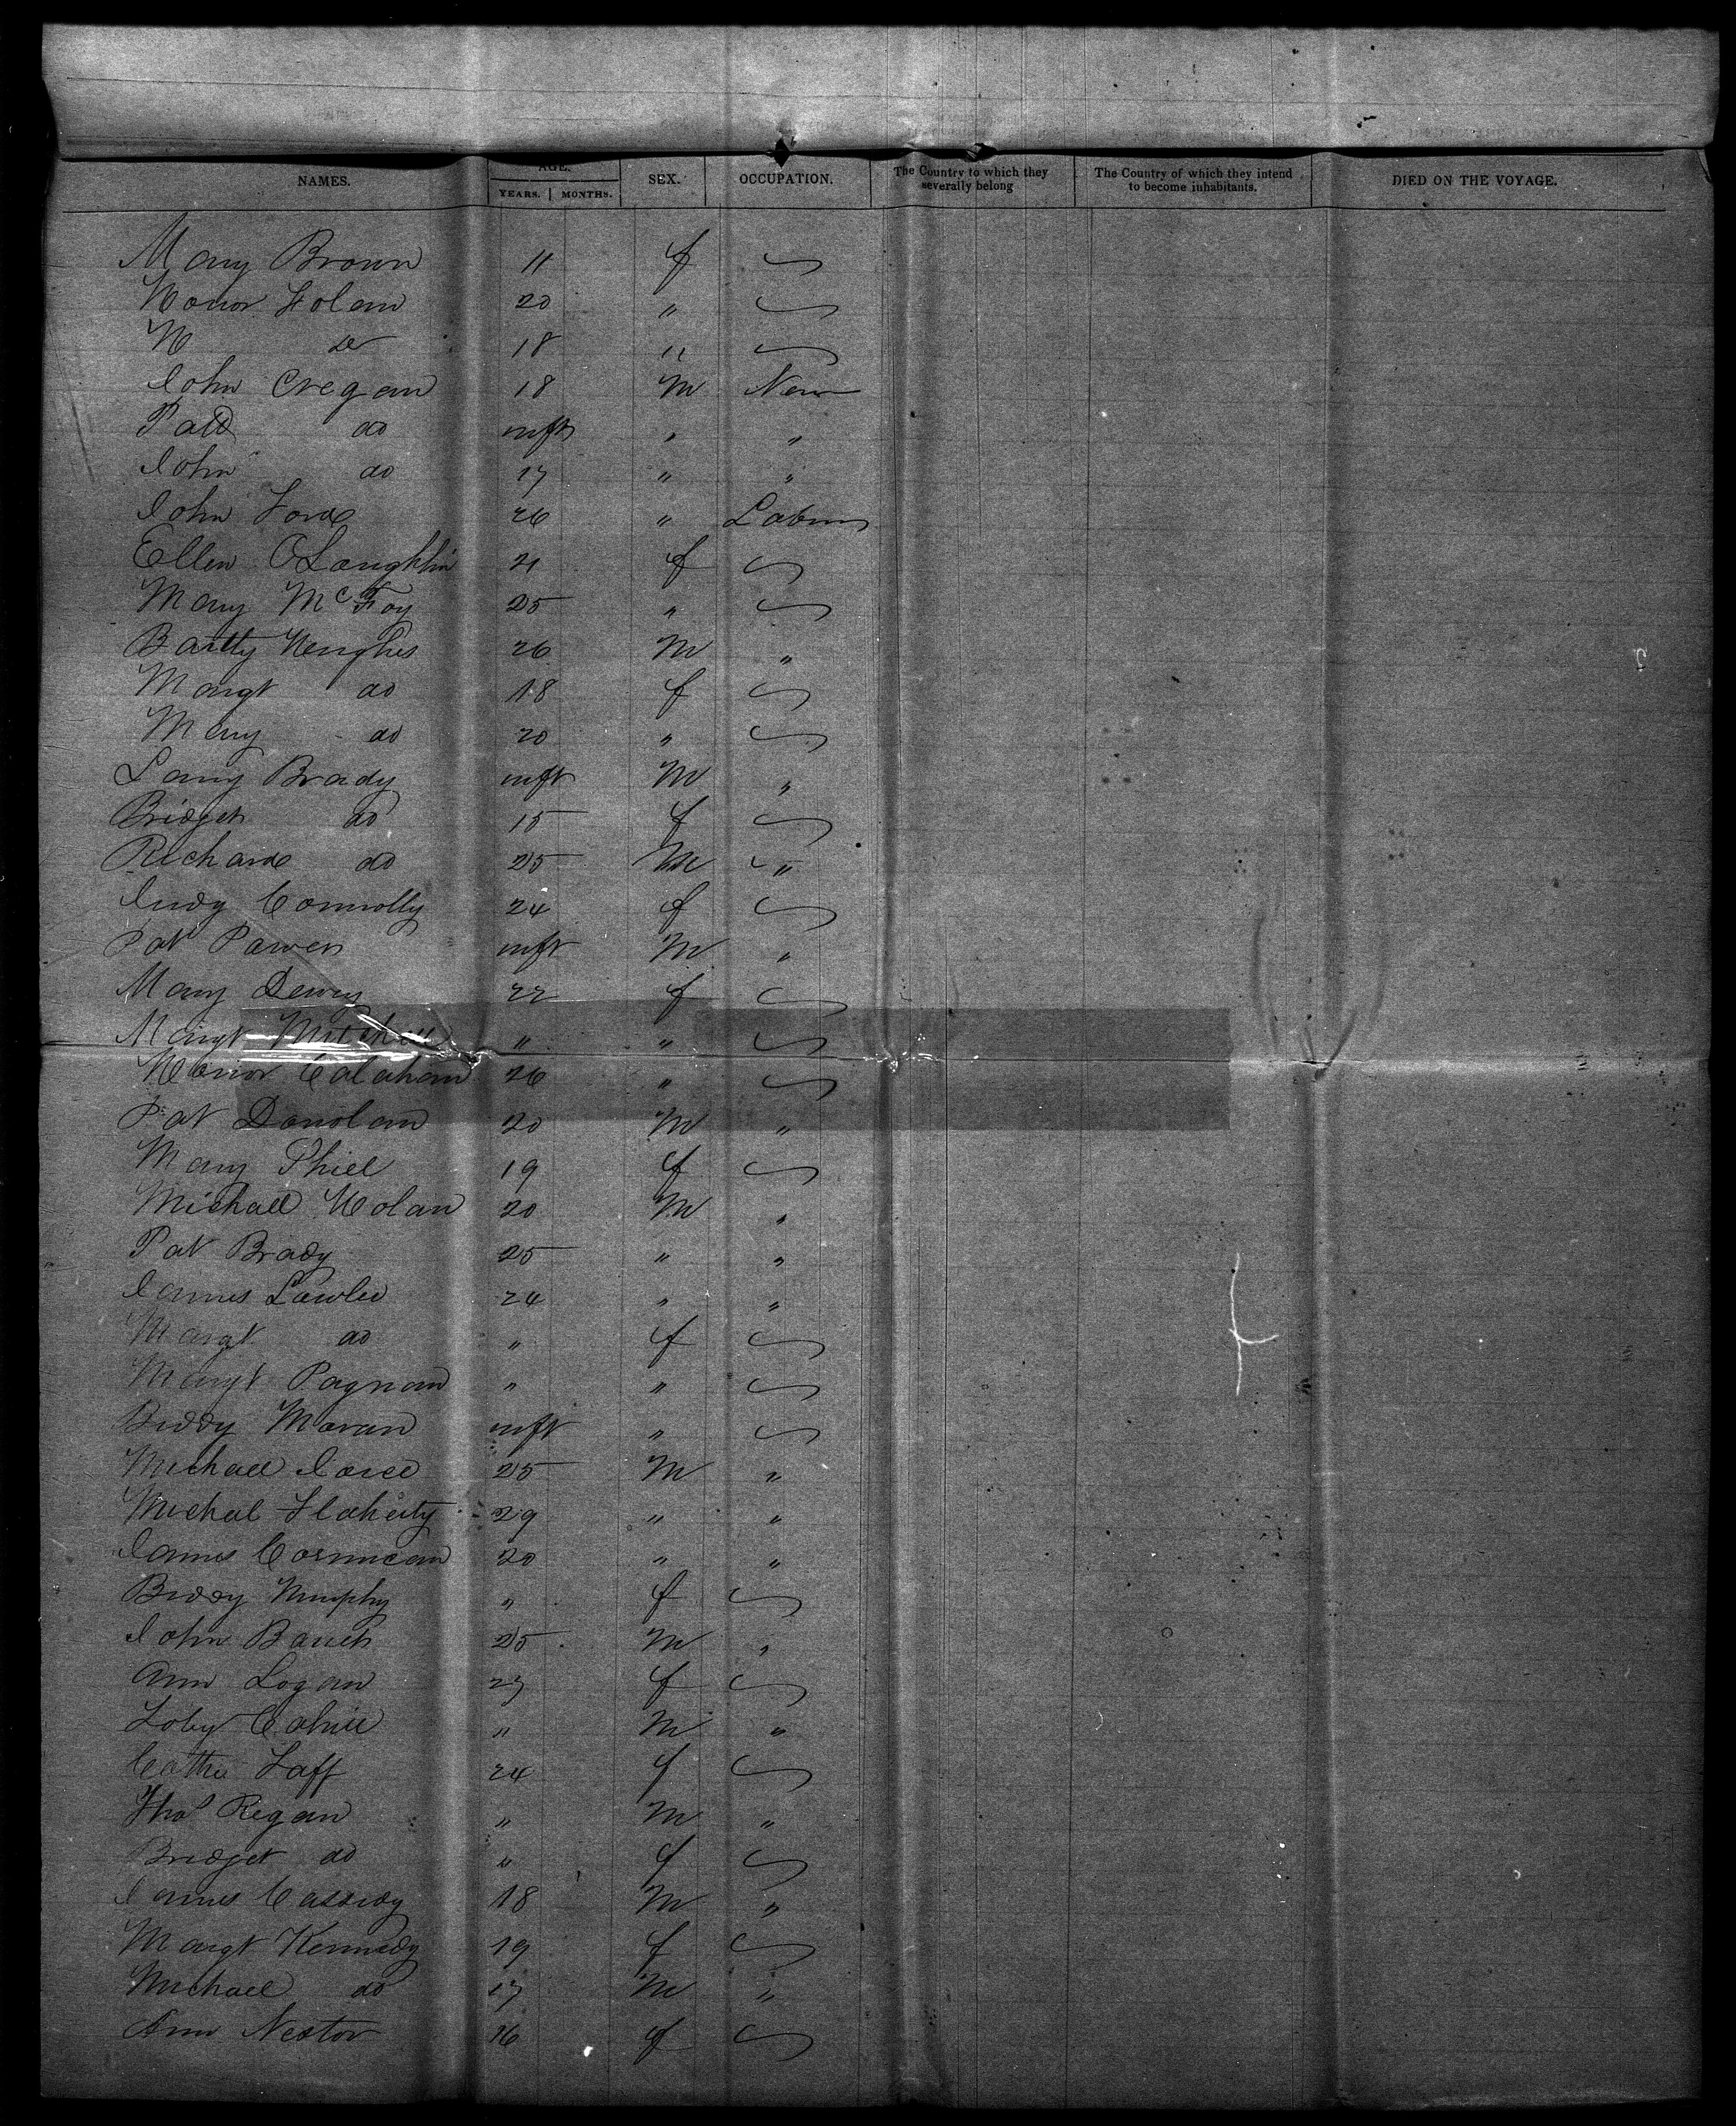 NAMES. AGE. YEARS. MONTHS. SEX. OCCUPATION. The Country to which they severally belong The Country of which they intend to become inhabitants. DIED ON THE VOYAGE.
Mary Brown 11 f
Honor Folan 20 "
H do 18 "
John Cregan 18 M Non
Patk do inft " "
John do 17 " "
John Ford 26 " Labour
Ellen OLaughlin 21 f
Mary McFoy 25 "
Bartty Hughes 26 M "
Margt do 18 f
Mary do 20 "
Larry Brady inft M "
Bridget do 15 f
Richard do 25 M "
Judy Connolly 24 f
Pat Power inft M "
Mary Dewey 22 f
Margt Mitchell " "
Honor Calahan 26 "
Pat Donolan 20 M "
Mary Phill 19 f
Michall Holan 20 M "
Pat Brady 25 " "
James Lawler 24 " "
Margt do " f
Margt Pagnan " "
Biddy Moran inft "
Michael Joice 25 M "
Michal Flaherty 29 " "
James Cormican 20 " "
Biddy Murphy " f
John 25 M "
Ann Logan 27 f
Toby Cahill " M "
Cathe Taff 24 f
Thos Regan " M "
Bridget do " f
James Cassidy 18 M "
Margt Kennedy 19 f
Michael do 17 M "
Ann Nestor 16 f